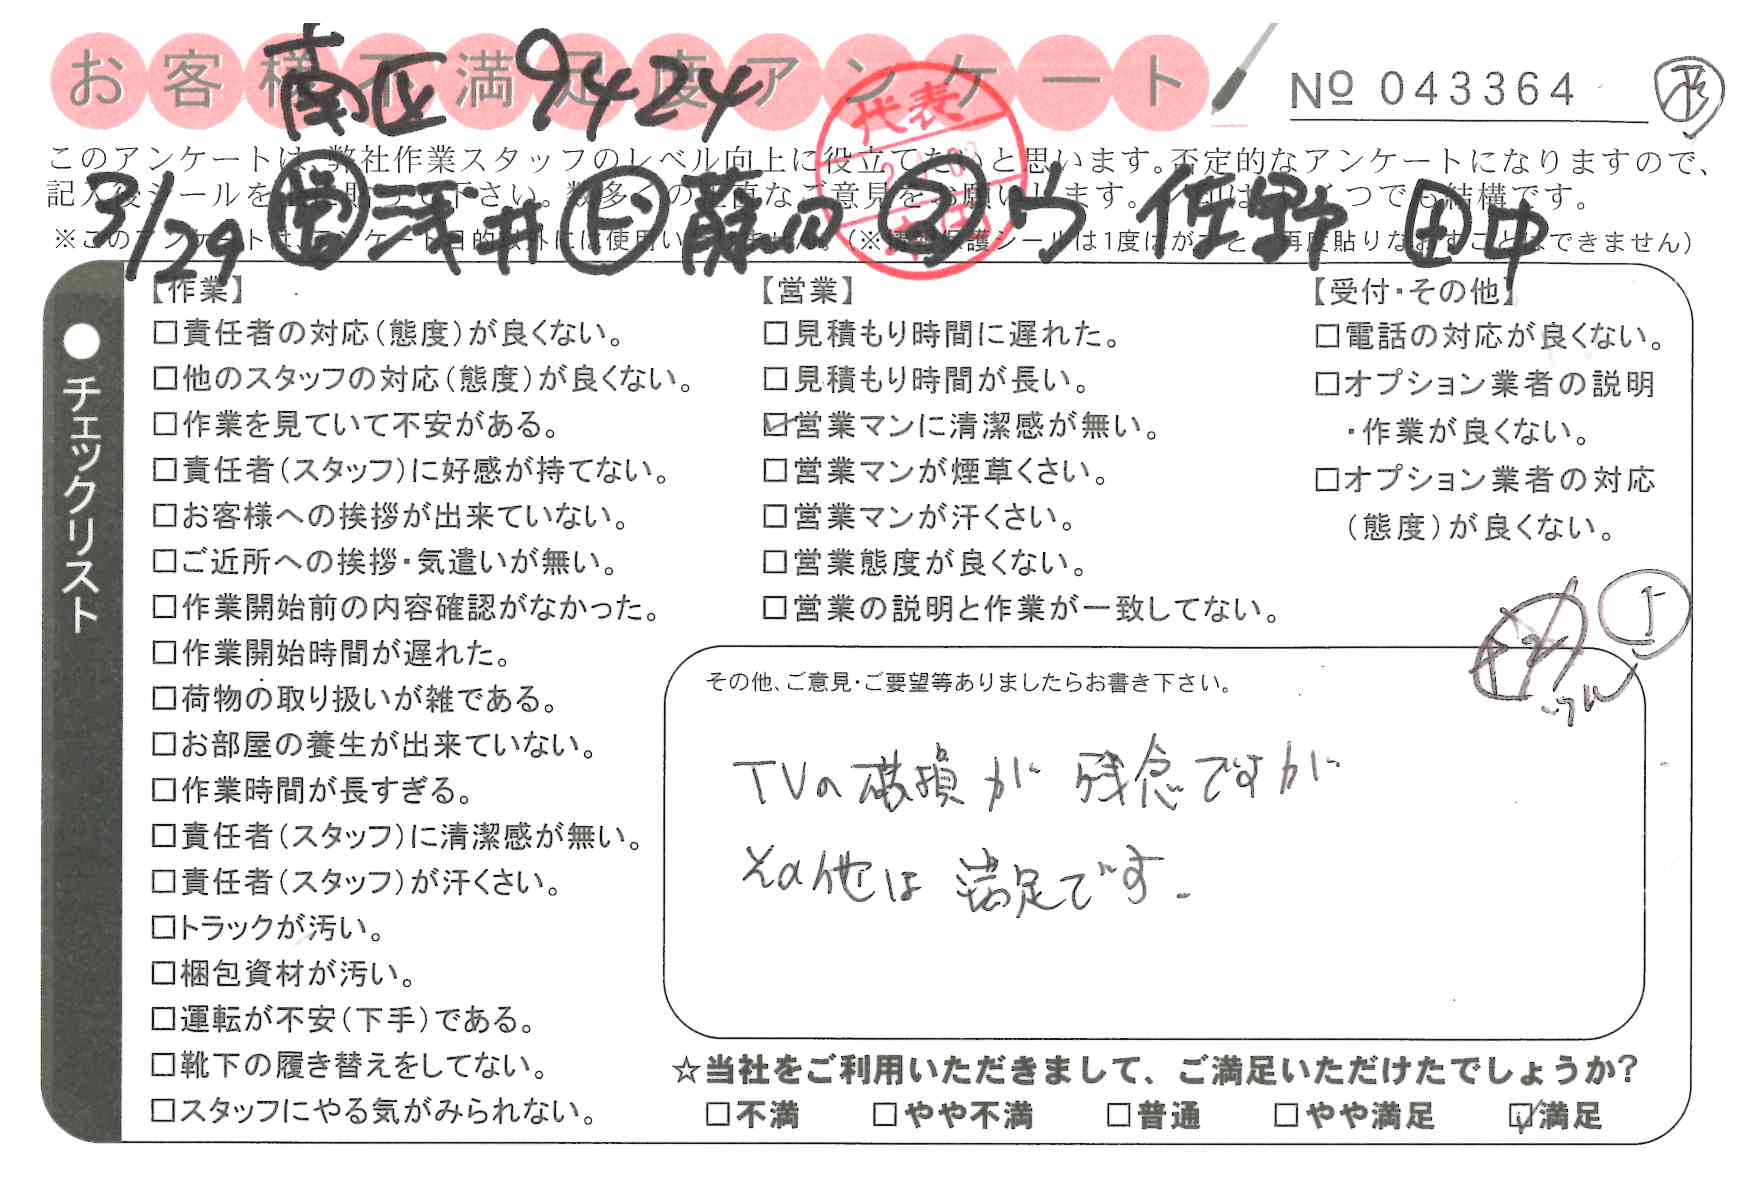 お客様不満足度アンケート
南区 9424
No 043364
このアンケートは、弊社作業スタッフのレベル向上に役立てたいと思います。否定的なアンケートになりますので、
記入後シールを 下さい。数多くの正直なご意見をお願いします。 つでも結構です。
※このアンケートは、アンケート目的以外には使用いたしません。(※情報保護シールは1度はがすと、再度貼りなおすことはできません)
代表
3/29 営 浅井 ド 藤田 佐野 田中
●チェックリスト
【作業】
□責任者の対応(態度)が良くない。
□他のスタッフの対応(態度)が良くない。
□作業を見ていて不安がある。
□責任者(スタッフ)に好感が持てない。
□お客様への挨拶が出来ていない。
□ご近所への挨拶・気遣いが無い。
□作業開始前の内容確認がなかった。
□作業開始時間が遅れた。
□荷物の取り扱いが雑である。
□お部屋の養生が出来ていない。
□作業時間が長すぎる。
□責任者(スタッフ)に清潔感が無い。
□責任者(スタッフ)が汗くさい。
□トラックが汚い。
□梱包資材が汚い。
□運転が不安(下手)である。
□靴下の履き替えをしてない。
□スタッフにやる気がみられない。
【営業】
□見積もり時間に遅れた。
□見積もり時間が長い。
☑営業マンに清潔感が無い。
□営業マンが煙草くさい。
□営業マンが汗くさい。
□営業態度が良くない。
□営業の説明と作業が一致してない。
【受付・その他】
□電話の対応が良くない。
□オプション業者の説明
・作業が良くない。
□オプション業者の対応
(態度)が良くない。
その他、ご意見・ご要望等ありましたらお書き下さい。
TVの破損が残念ですが
その他は満足です。
☆当社をご利用いただきまして、ご満足いただけたでしょうか?
□不満 □やや不満 □普通 □やや満足 ☑満足